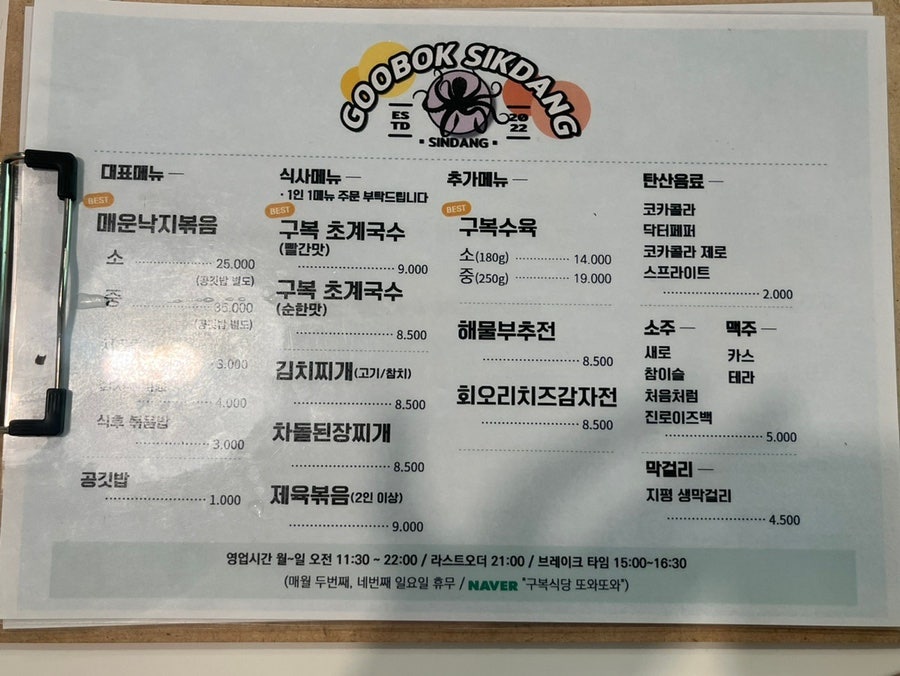 GOOBOK SIKDANG
ES
TD
20
22
· SINDANG ·
대표메뉴 —
BEST
매운낙지볶음
소 25.000
(공깃밥 별도)
중 35.000
(공깃밥 별도)
3.000
4.000
식후 볶음밥
3.000
공깃밥
1.000
식사메뉴 —
· 1인 1메뉴 주문 부탁드립니다
BEST
구복 초계국수
(빨간맛)
9.000
구복 초계국수
(순한맛)
8.500
김치찌개(고기/참치)
8.500
차돌된장찌개
8.500
제육볶음(2인 이상)
9.000
추가메뉴 —
BEST
구복수육
소(180g) 14.000
중(250g) 19.000
해물부추전
8.500
회오리치즈감자전
8.500
탄산음료 —
코카콜라
닥터페퍼
코카콜라 제로
스프라이트
2.000
소주 —
새로
참이슬
처음처럼
진로이즈백
맥주 —
카스
테라
5.000
막걸리 —
지평 생막걸리
4.500
영업시간 월~일 오전 11:30 ~ 22:00 / 라스트오더 21:00 / 브레이크 타임 15:00~16:30
(매월 두번째, 네번째 일요일 휴무 / NAVER "구복식당 또와또와")